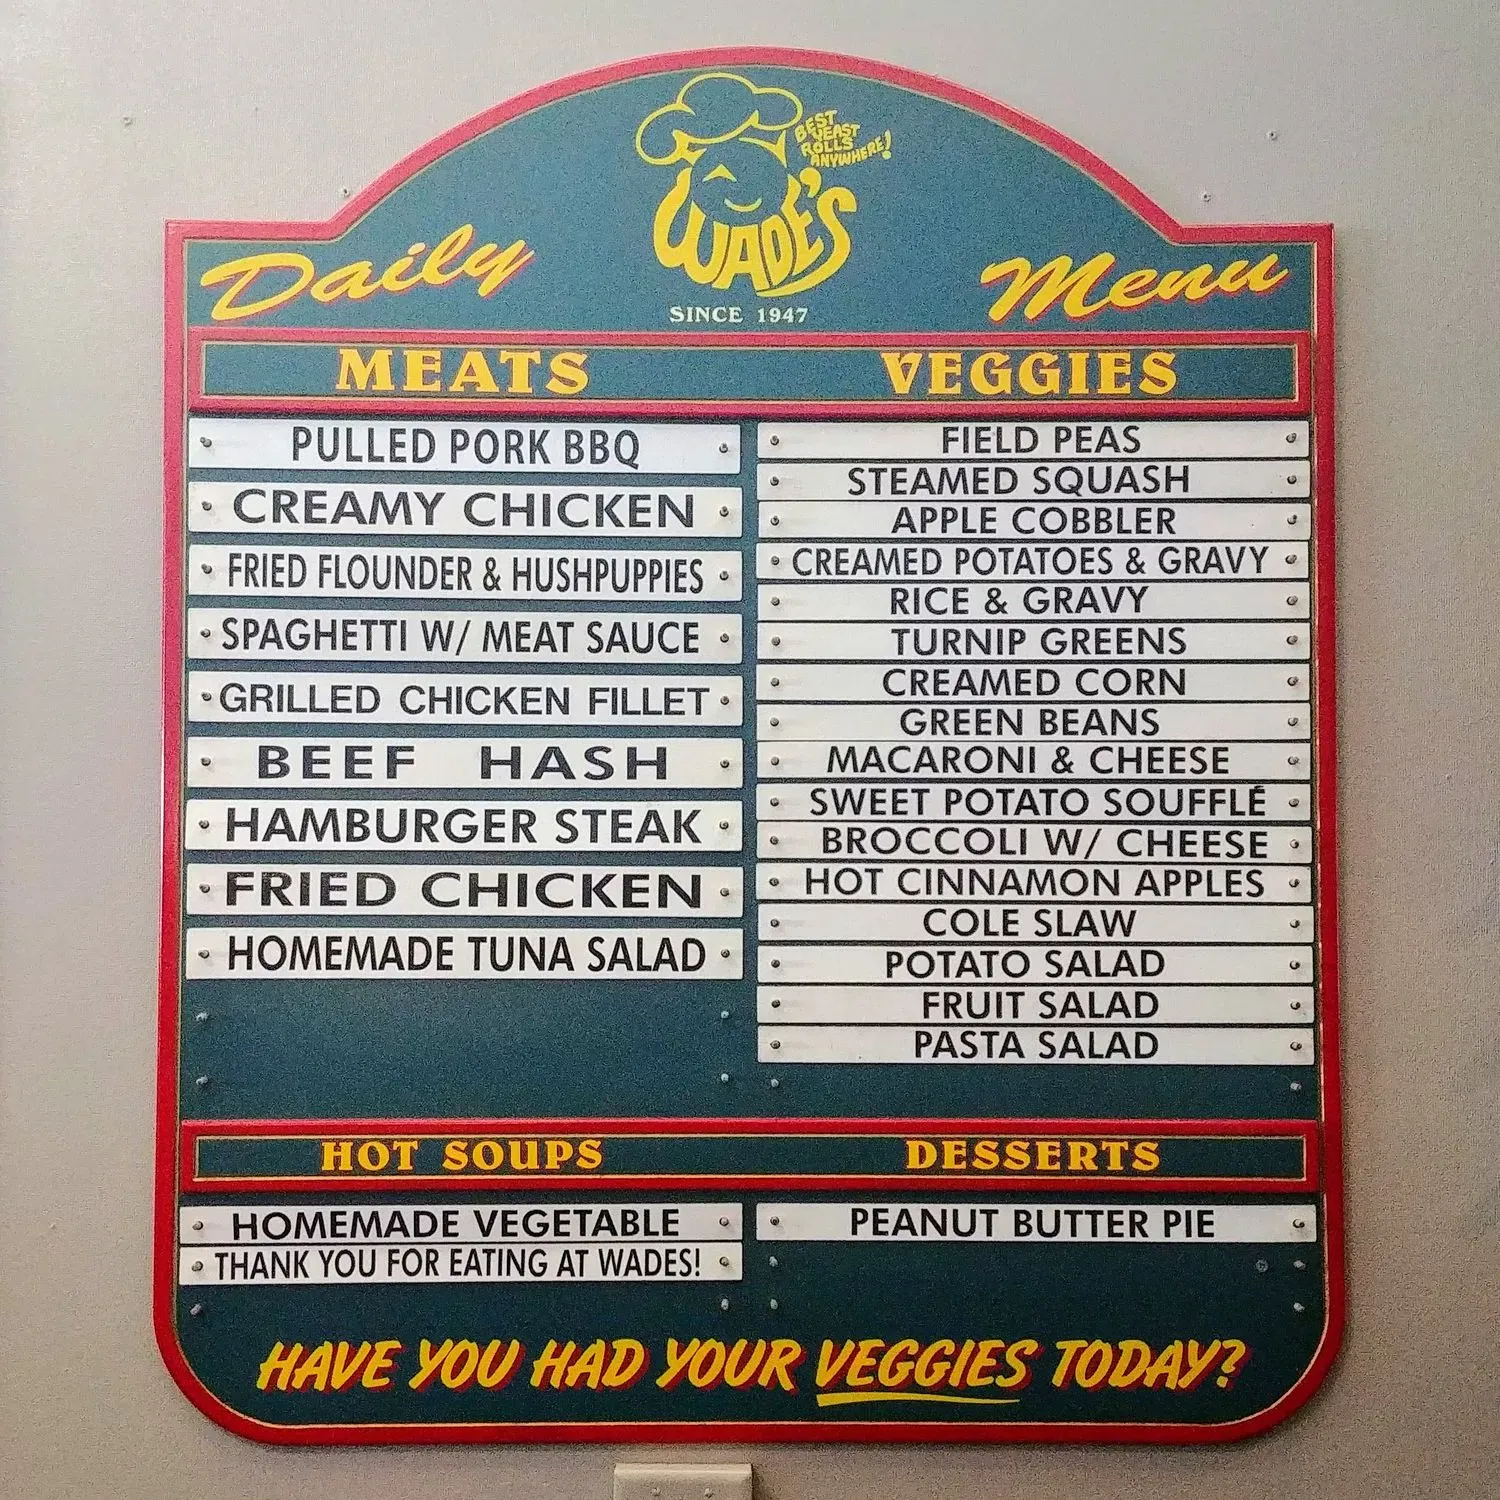 BEST
YEAST
ROLLS
ANYWHERE!
WADE'S
Daily Menu
SINCE 1947
MEATS
PULLED PORK BBQ
CREAMY CHICKEN
FRIED FLOUNDER & HUSHPUPPIES
SPAGHETTI W/ MEAT SAUCE
GRILLED CHICKEN FILLET
BEEF HASH
HAMBURGER STEAK
FRIED CHICKEN
HOMEMADE TUNA SALAD
VEGGIES
FIELD PEAS
STEAMED SQUASH
APPLE COBBLER
CREAMED POTATOES & GRAVY
RICE & GRAVY
TURNIP GREENS
CREAMED CORN
GREEN BEANS
MACARONI & CHEESE
SWEET POTATO SOUFFLÉ
BROCCOLI W/ CHEESE
HOT CINNAMON APPLES
COLE SLAW
POTATO SALAD
FRUIT SALAD
PASTA SALAD
HOT SOUPS
HOMEMADE VEGETABLE
THANK YOU FOR EATING AT WADES!
DESSERTS
PEANUT BUTTER PIE
HAVE YOU HAD YOUR VEGGIES TODAY?